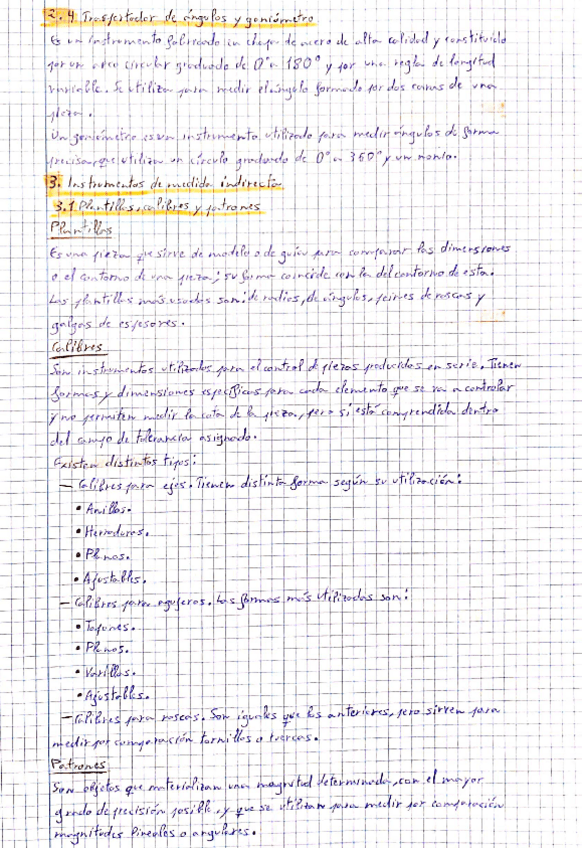 2.4 Trasportador de ángulos y goniómetro
Es un instrumento fabricado en chapa de acero de alta calidad y constituido
por un arco circular graduado de 0° a 180° y por una regla de longitud
variable. Se utiliza para medir el ángulo formado por dos caras de una
pieza.
Un goniómetro es un instrumento utilizado para medir ángulos de forma
precisa que utiliza un círculo graduado de 0° a 360° y un nonio.
3. Instrumentos de medida indirecta
3.1 Plantillas, calibres y patrones
Plantillas
Es una pieza que sirve de modelo o de guía para comparar las dimensiones
o el contorno de una pieza; su forma coincide con la del contorno de esta.
Las plantillas más usadas son: de radios, de ángulos, peines de roscas y
galgas de espesores.
Calibres
Son instrumentos utilizados para el control de piezas producidas en serie. Tienen
formas y dimensiones específicas para cada elemento que se va a controlar
y no permiten medir la cota de la pieza, pero si está comprendida dentro
del campo de tolerancia asignado.
Existen distintos tipos:
- Calibres para ejes. Tienen distinta forma según su utilización:
• Anillos.
• Herraduras.
• Planos.
• Ajustables.
- Calibres para agujeros. Las formas más utilizadas son:
• Tapones.
• Planos.
• Varillas.
• Ajustables.
- Calibres para roscas. Son iguales que los anteriores, pero sirven para
medir por comparación tornillos o tuercas.
Patrones
Son objetos que materializan una magnitud determinada, con el mayor
grado de precisión posible, y que se utilizan para medir por comparación
magnitudes lineales o angulares.